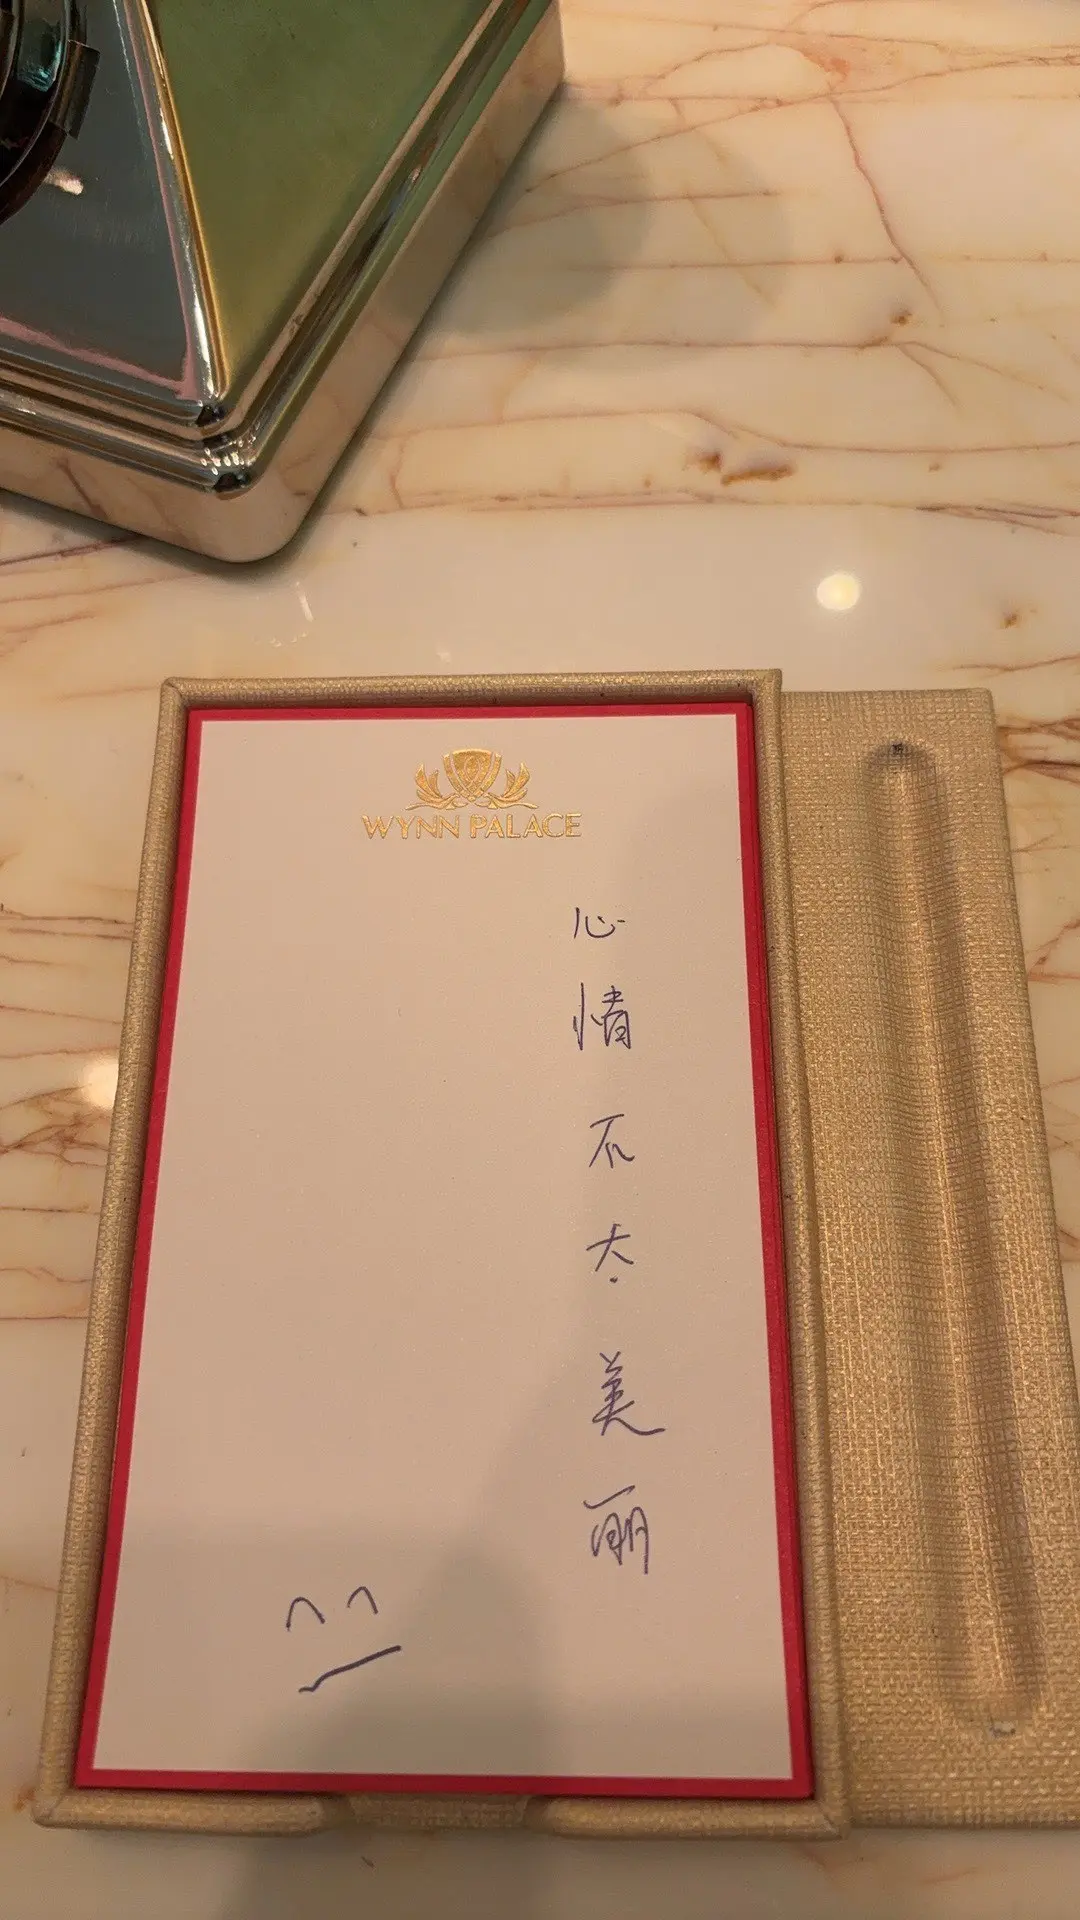 WYNN PALACE
心情不太美丽